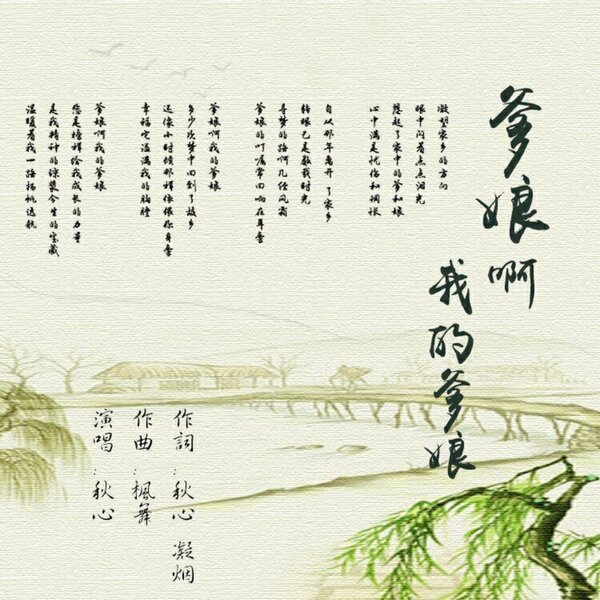 爹娘啊
我的爹娘
凝望家乡的方向
眼中闪着点点泪光
想起了家中的爹和娘
心中满是忧伤和惆怅
自从那年离开了家乡
转眼已是数载时光
寻梦的路啊几经风霜
爹娘的叮嘱常回响在耳旁
爹娘啊我的爹娘
多少次梦中回到了故乡
还像小时候那样偎依你身旁
幸福它溢满我的胸膛
爹娘啊我的爹娘
您是榜样给我成长的力量
是我精神的绿装今生的宝藏
温暖着我一路扬帆远航
作詞:秋心 凝烟
作曲:楓舞
演唱:秋心